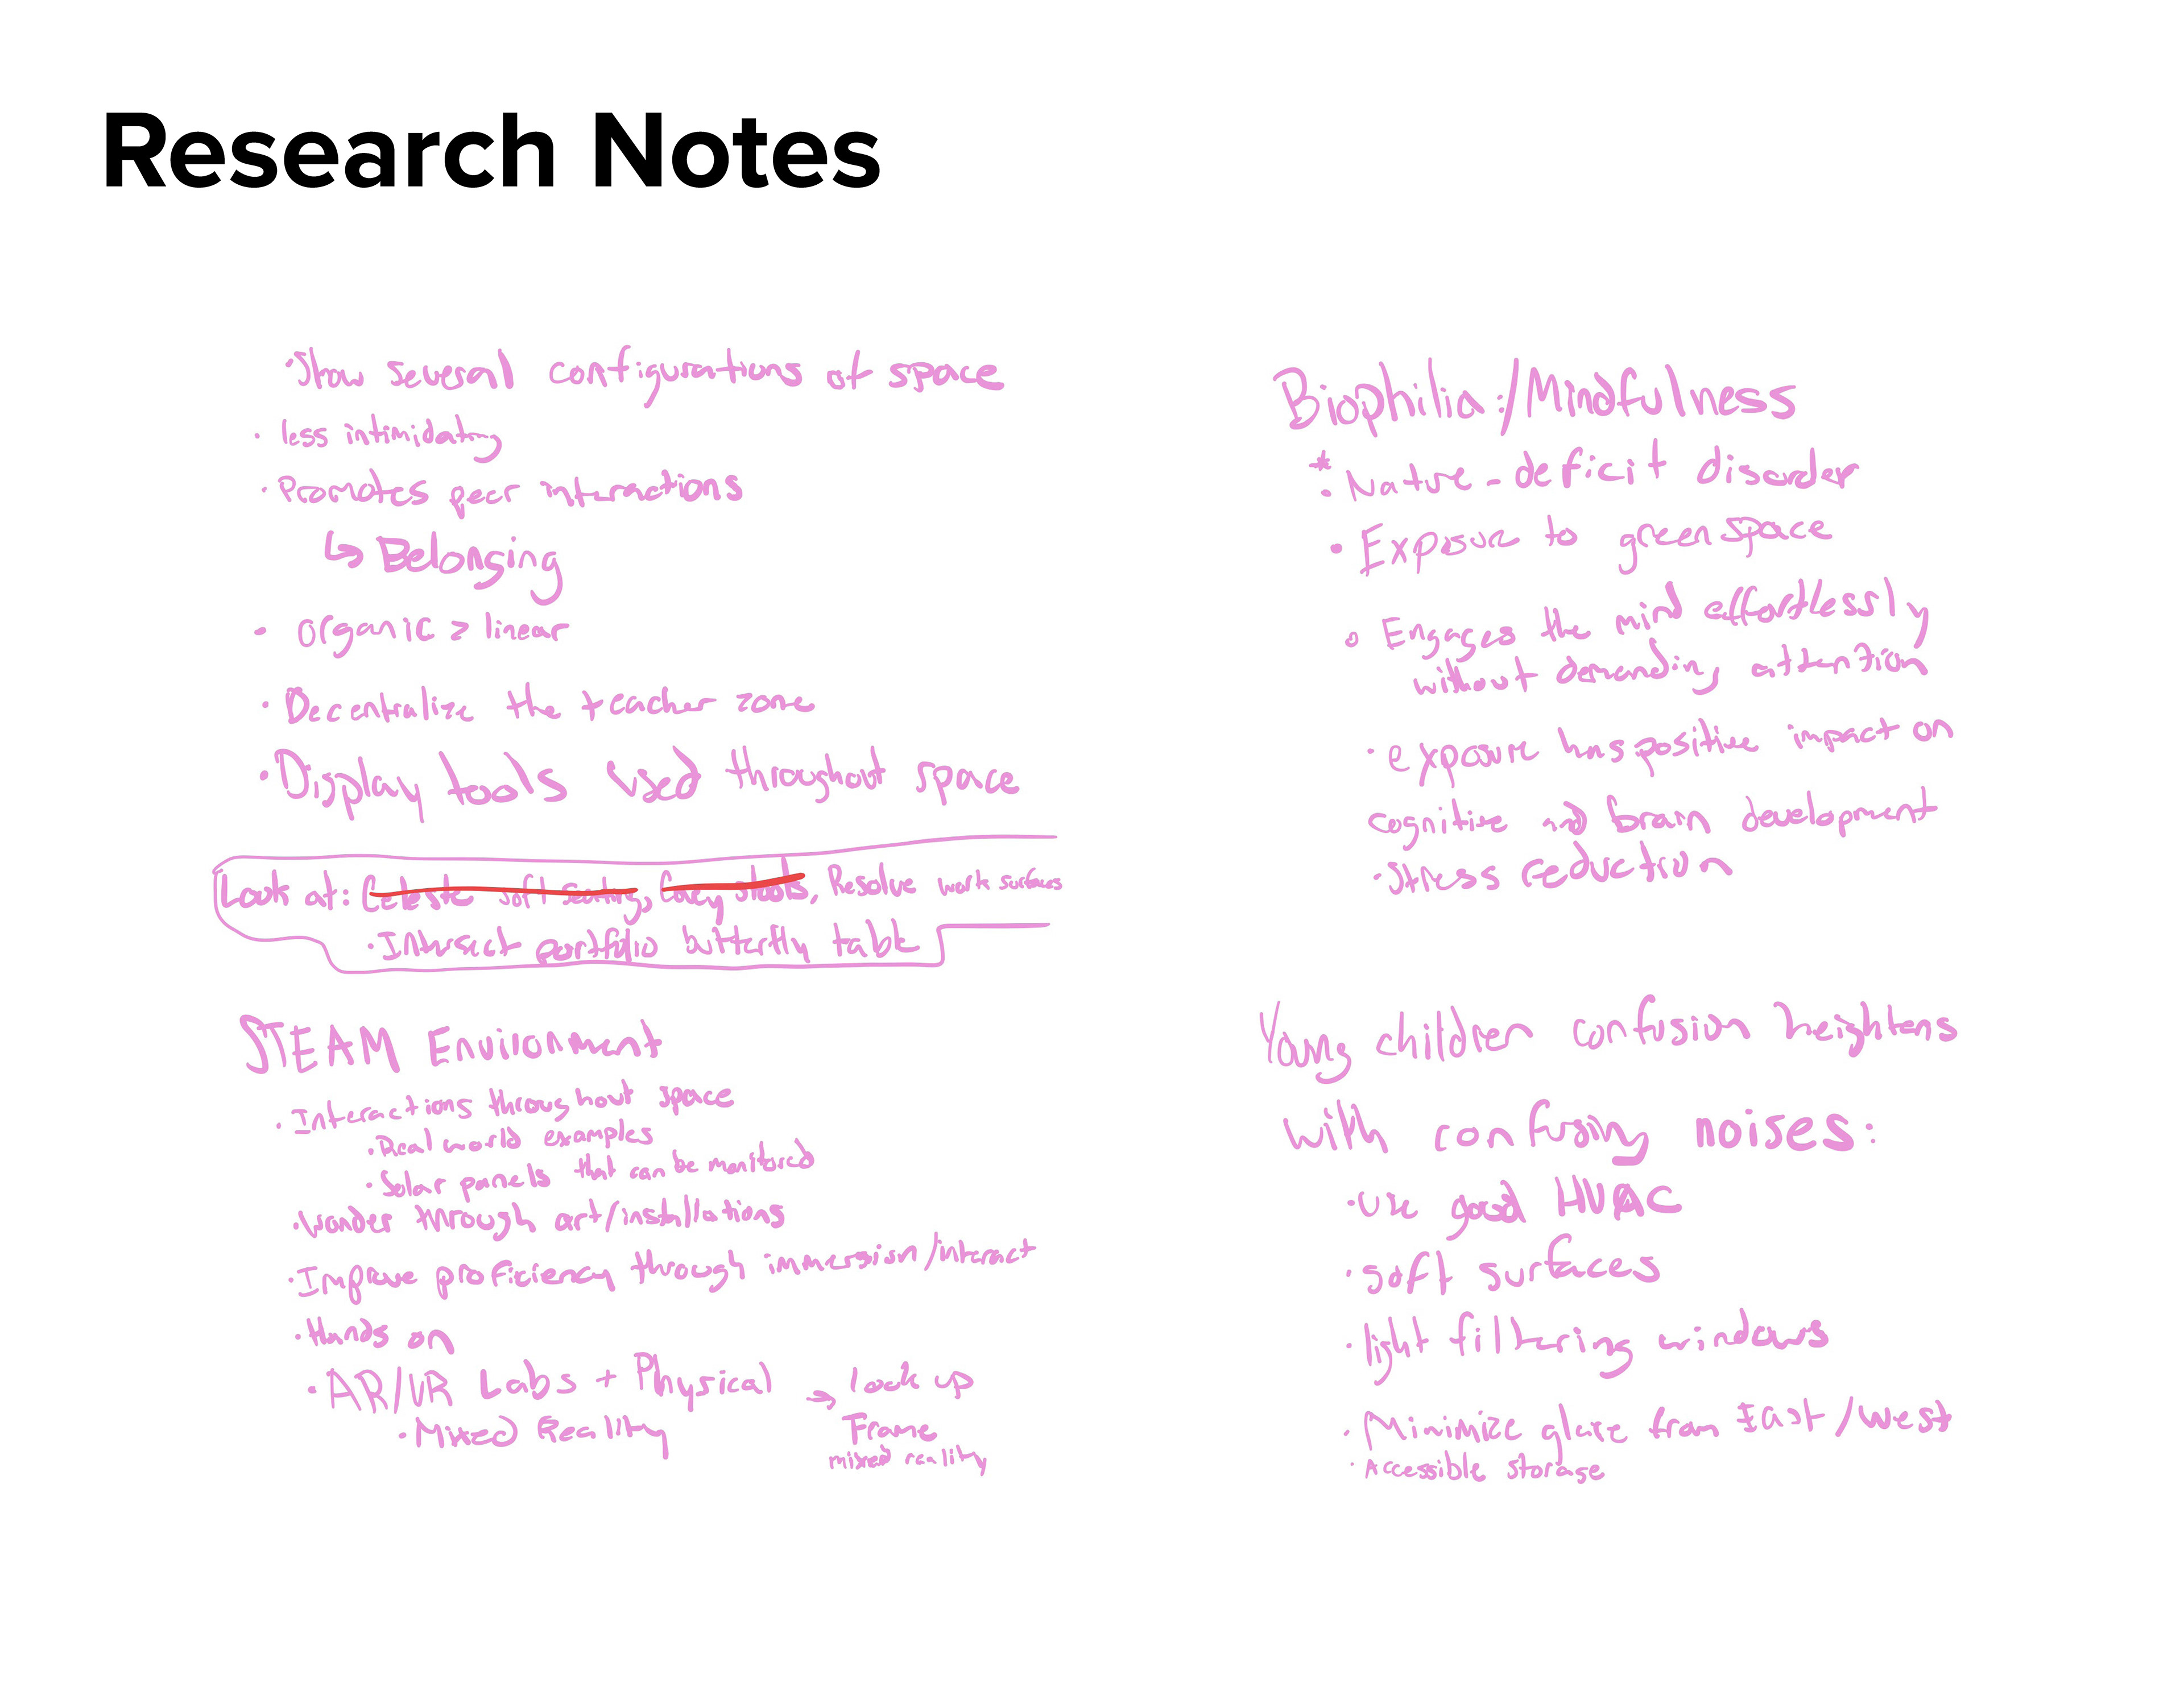 Research Notes
· Show several configurations of space
· less intimidating
· Promotes peer interactions
↳ Belonging
· organic > linear
· Decentralize the teacher zone
· Display tools used throughout space
Look at: Celeste soft seating, Covey stools, Resolve work surfaces
· Intersect portfolio butterfly table
STEAM Environment
· Interactions throughout space
· Real world examples
· Solar panels that can be monitored
· Wonder through art/installations
· Improve proficiency through immersion/interact
· Hands on
· AR/VR Labs + Physical → look up
· Mixed Reality Frame
mixed reality
Biophilia:/Mindfulness
* · Nature-deficit disorder
· Exposure to green space
· Engages the mind effortlessly
without demanding attention
· exposure has positive impact on
cognitive and brain development
· Stress reduction
Young children confusion heightens
with confusing noises:
· Use good HVAC
· soft surfaces
· light filtering windows
· Minimize glare from East/West
· Accessible storage